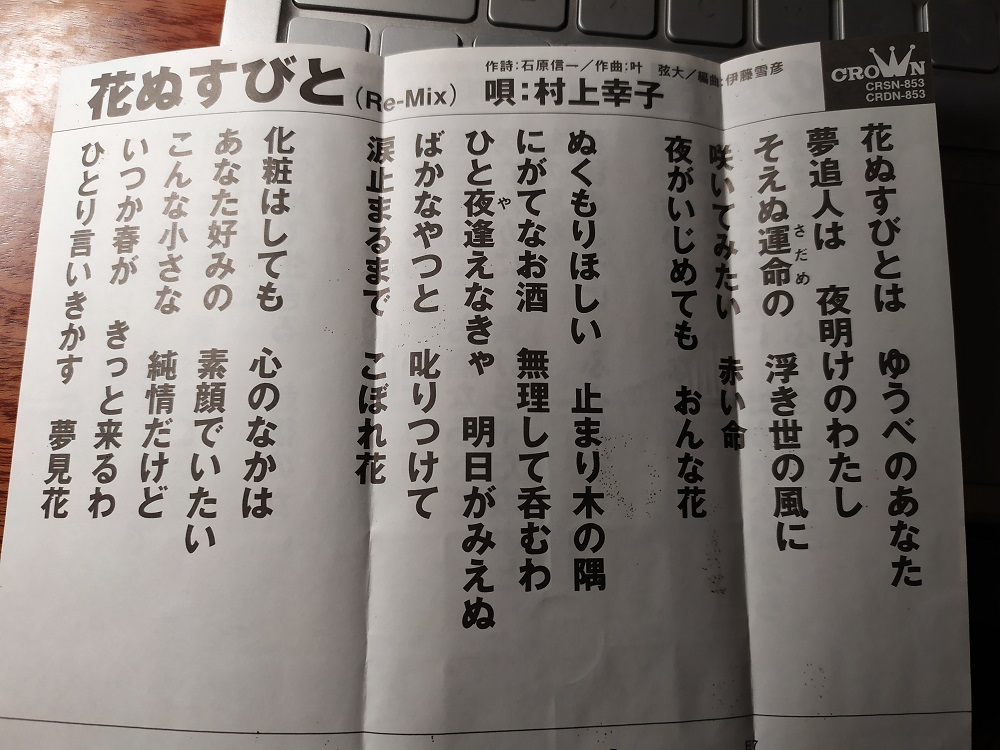 花ぬすびと(Re-Mix)
作詩:石原信一/作曲:叶 弦大/編曲:伊藤雪彦
唄:村上幸子
CROWN
CRSN-853
CRDN-853
花ぬすびとは ゆうべのあなた
夢追人は 夜明けのわたし
そえぬ運命の 浮き世の風に
さだめ
咲いてみたい 赤い命
夜がいじめても おんな花
ぬくもりほしい 止まり木の隅
にがてなお酒 無理して呑むわ
ひと夜逢えなきゃ 明日がみえぬ
や
ばかなやつと 叱りつけて
涙止まるまで こぼれ花
化粧はしても 心のなかは
あなた好みの 素顔でいたい
こんな小さな 純情だけど
いつか春が きっと来るわ
ひとり言いきかす 夢見花